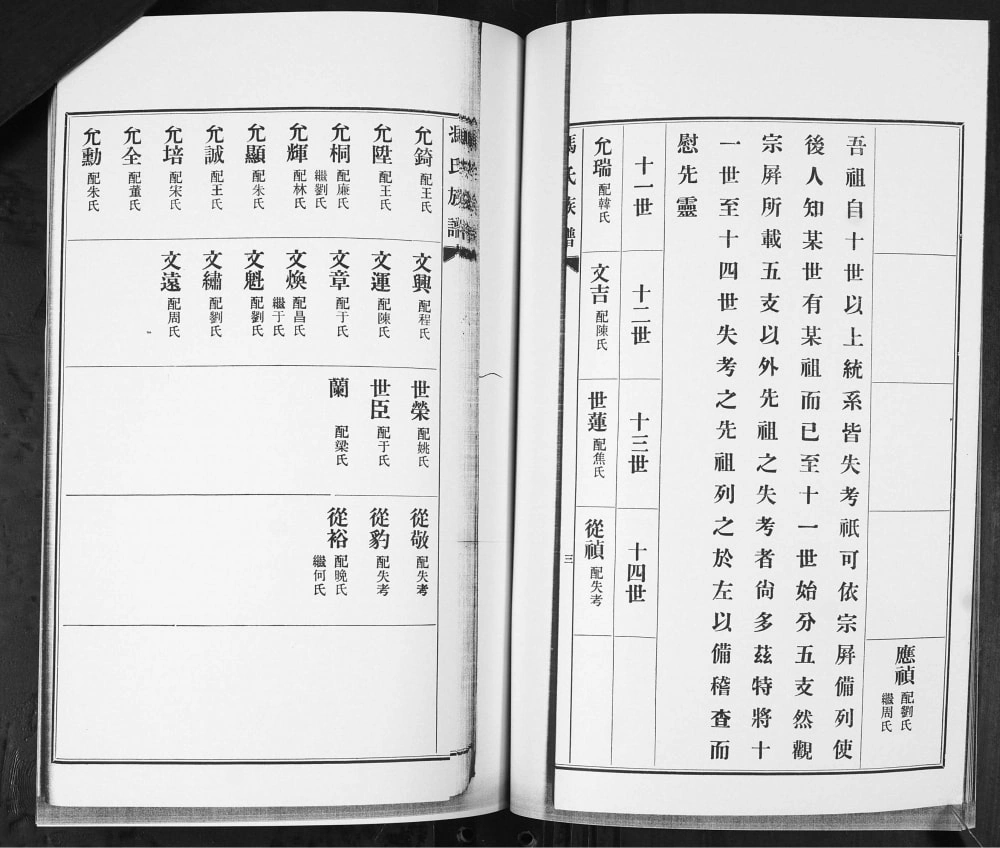 應禎 配劉氏 繼周氏
吾祖自十世以上統系皆失考祇可依宗屏備列使
後人知某世有某祖而已至十一世始分五支然觀
宗屏所載五支以外先祖之失考者尙多茲特將十
一世至十四世失考之先祖列之於左以備稽查而
慰先靈
十一世 十二世 十三世 十四世
允瑞 配韓氏 文吉 配陳氏 世蓮 配焦氏 從禎 配失考
馮氏族譜 三
氏族譜
允錡 配王氏 文興 配程氏 世榮 配姚氏 從敬 配失考
允陞 配王氏 文運 配陳氏 世臣 配于氏 從豹 配失考
允桐 配廉氏 繼劉氏 文章 配于氏 蘭 配梁氏 從裕 配晚氏 繼何氏
允輝 配林氏 文煥 配昌氏 繼于氏
允顯 配朱氏 文魁 配劉氏
允誠 配王氏 文繡 配劉氏
允培 配宋氏 文遠 配周氏
允全 配董氏
允勳 配朱氏